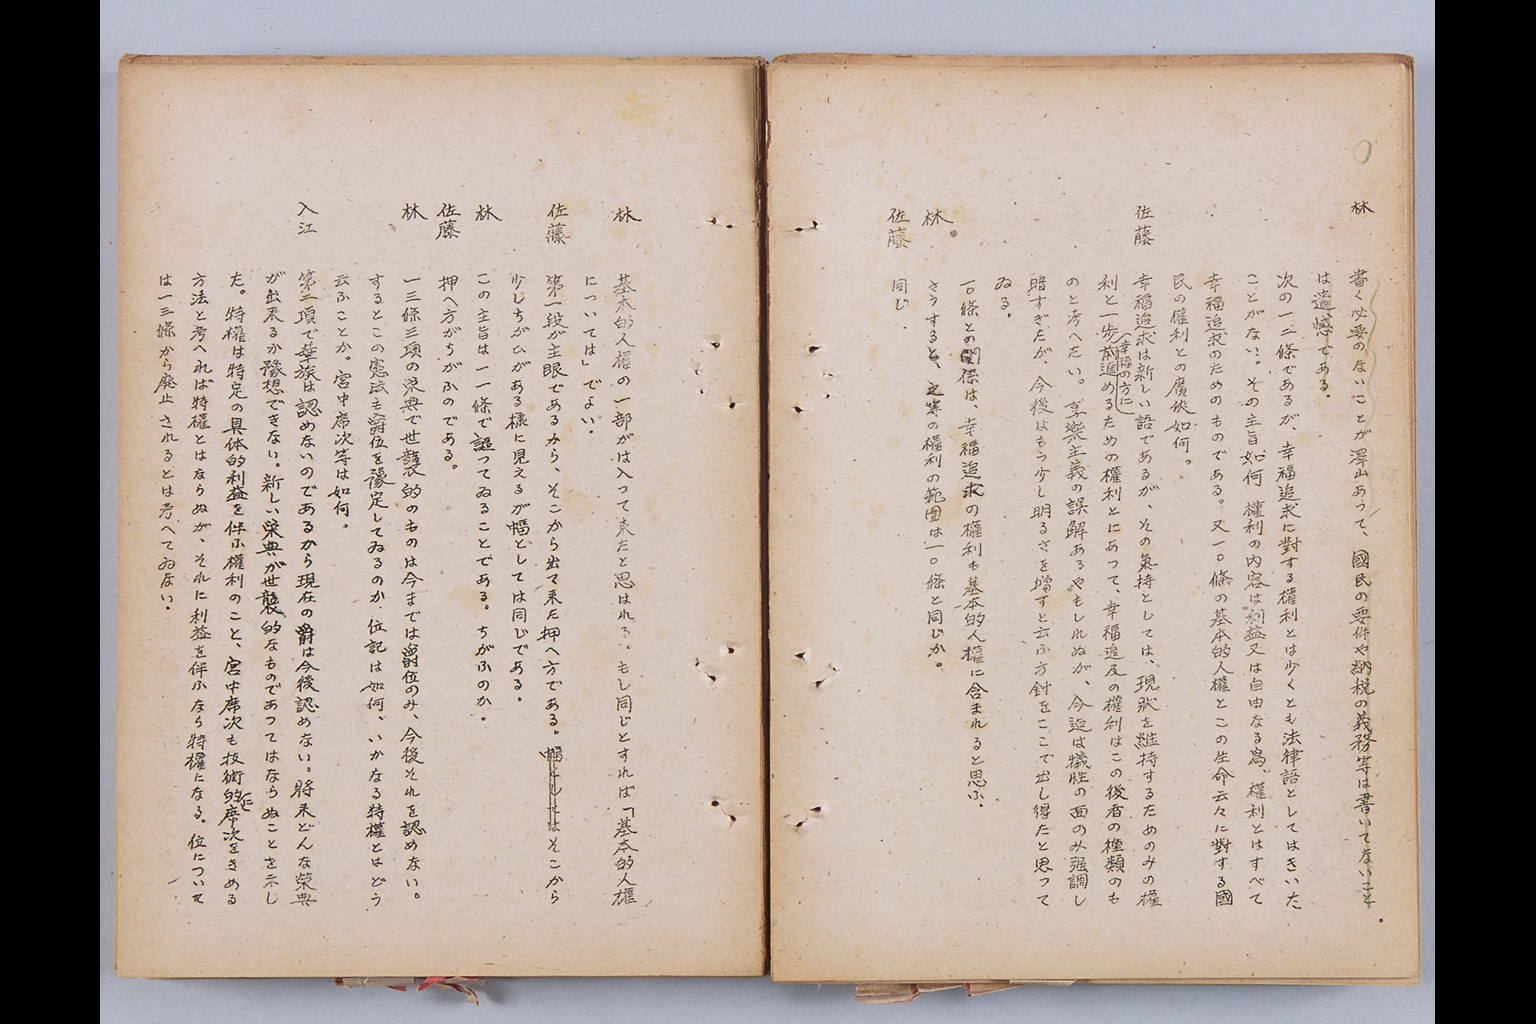 林 書く必要のないことが澤山あつて、國民の要件や納税の義務等は書いてないこと
は遺憾である。
次の一二條であるが、幸福追求に對する權利とは少くとも法律語としてはきいた
ことがない。その主旨如何 權利の内容は利益又は自由なる爲、權利とはすべて
幸福追求のためのものである。又一〇條の基本的人權とこの生命云々に對する國
民の權利との廣狹如何。
佐藤 幸福追求は新しい語であるが、その氣持としては、現狀を維持するためのみの權
利と一步前進めるための權利とにあつて、幸福追及の權利はこの後者の種類のも
(幸福の方に)
のと考へたい。享樂主義の誤解あるやもしれぬが、今迄は犧牲の面のみ强調し
暗すぎたが、今後はもう少し明るさを増すと云ふ方針をここで出し得たと思つて
ゐる。
一〇條との關係は、幸福追求の權利も基本的人權に含まれると思ふ。
林 さうすると、之等の權利の範囲は一〇條と同じか。
佐藤 同じ.
林 基本的人權の一部がは入つて来たと思はれる。もし同じとすれば「基本的人權
については」でよい.
佐藤 第一段が主眼であるから、そこから出て来た押へ方である。幅としてはそこから
少しちがひがある様に見えるが幅としては同じである。
林 この主旨は一一條で謳つてゐることである。ちがふのか。
佐藤 押へ方がちがふのである。
林 一三條三項の栄典で世襲的のものは今までは爵位のみ、今後それを認めない。
するとこの憲法も爵位を豫定してゐるのか. 位記は如何、いかなる特權とはどう
云ふことか。宮中席次等は如何。
入江 第二項で華族は認めないのであるから現在の爵は今後認めない。將来どんな榮典
が出来るか豫想できない。新しい榮典が世襲的なものであつてはならぬことを示し
た。特權は特定の具体的利益を伴ふ權利のこと、宮中席次も技術的に席次をきめる
方法と考へれば特權とはならぬが、それに利益を伴ふなら特權になる. 位について
は一三條から廢止されるとは考へてゐない.